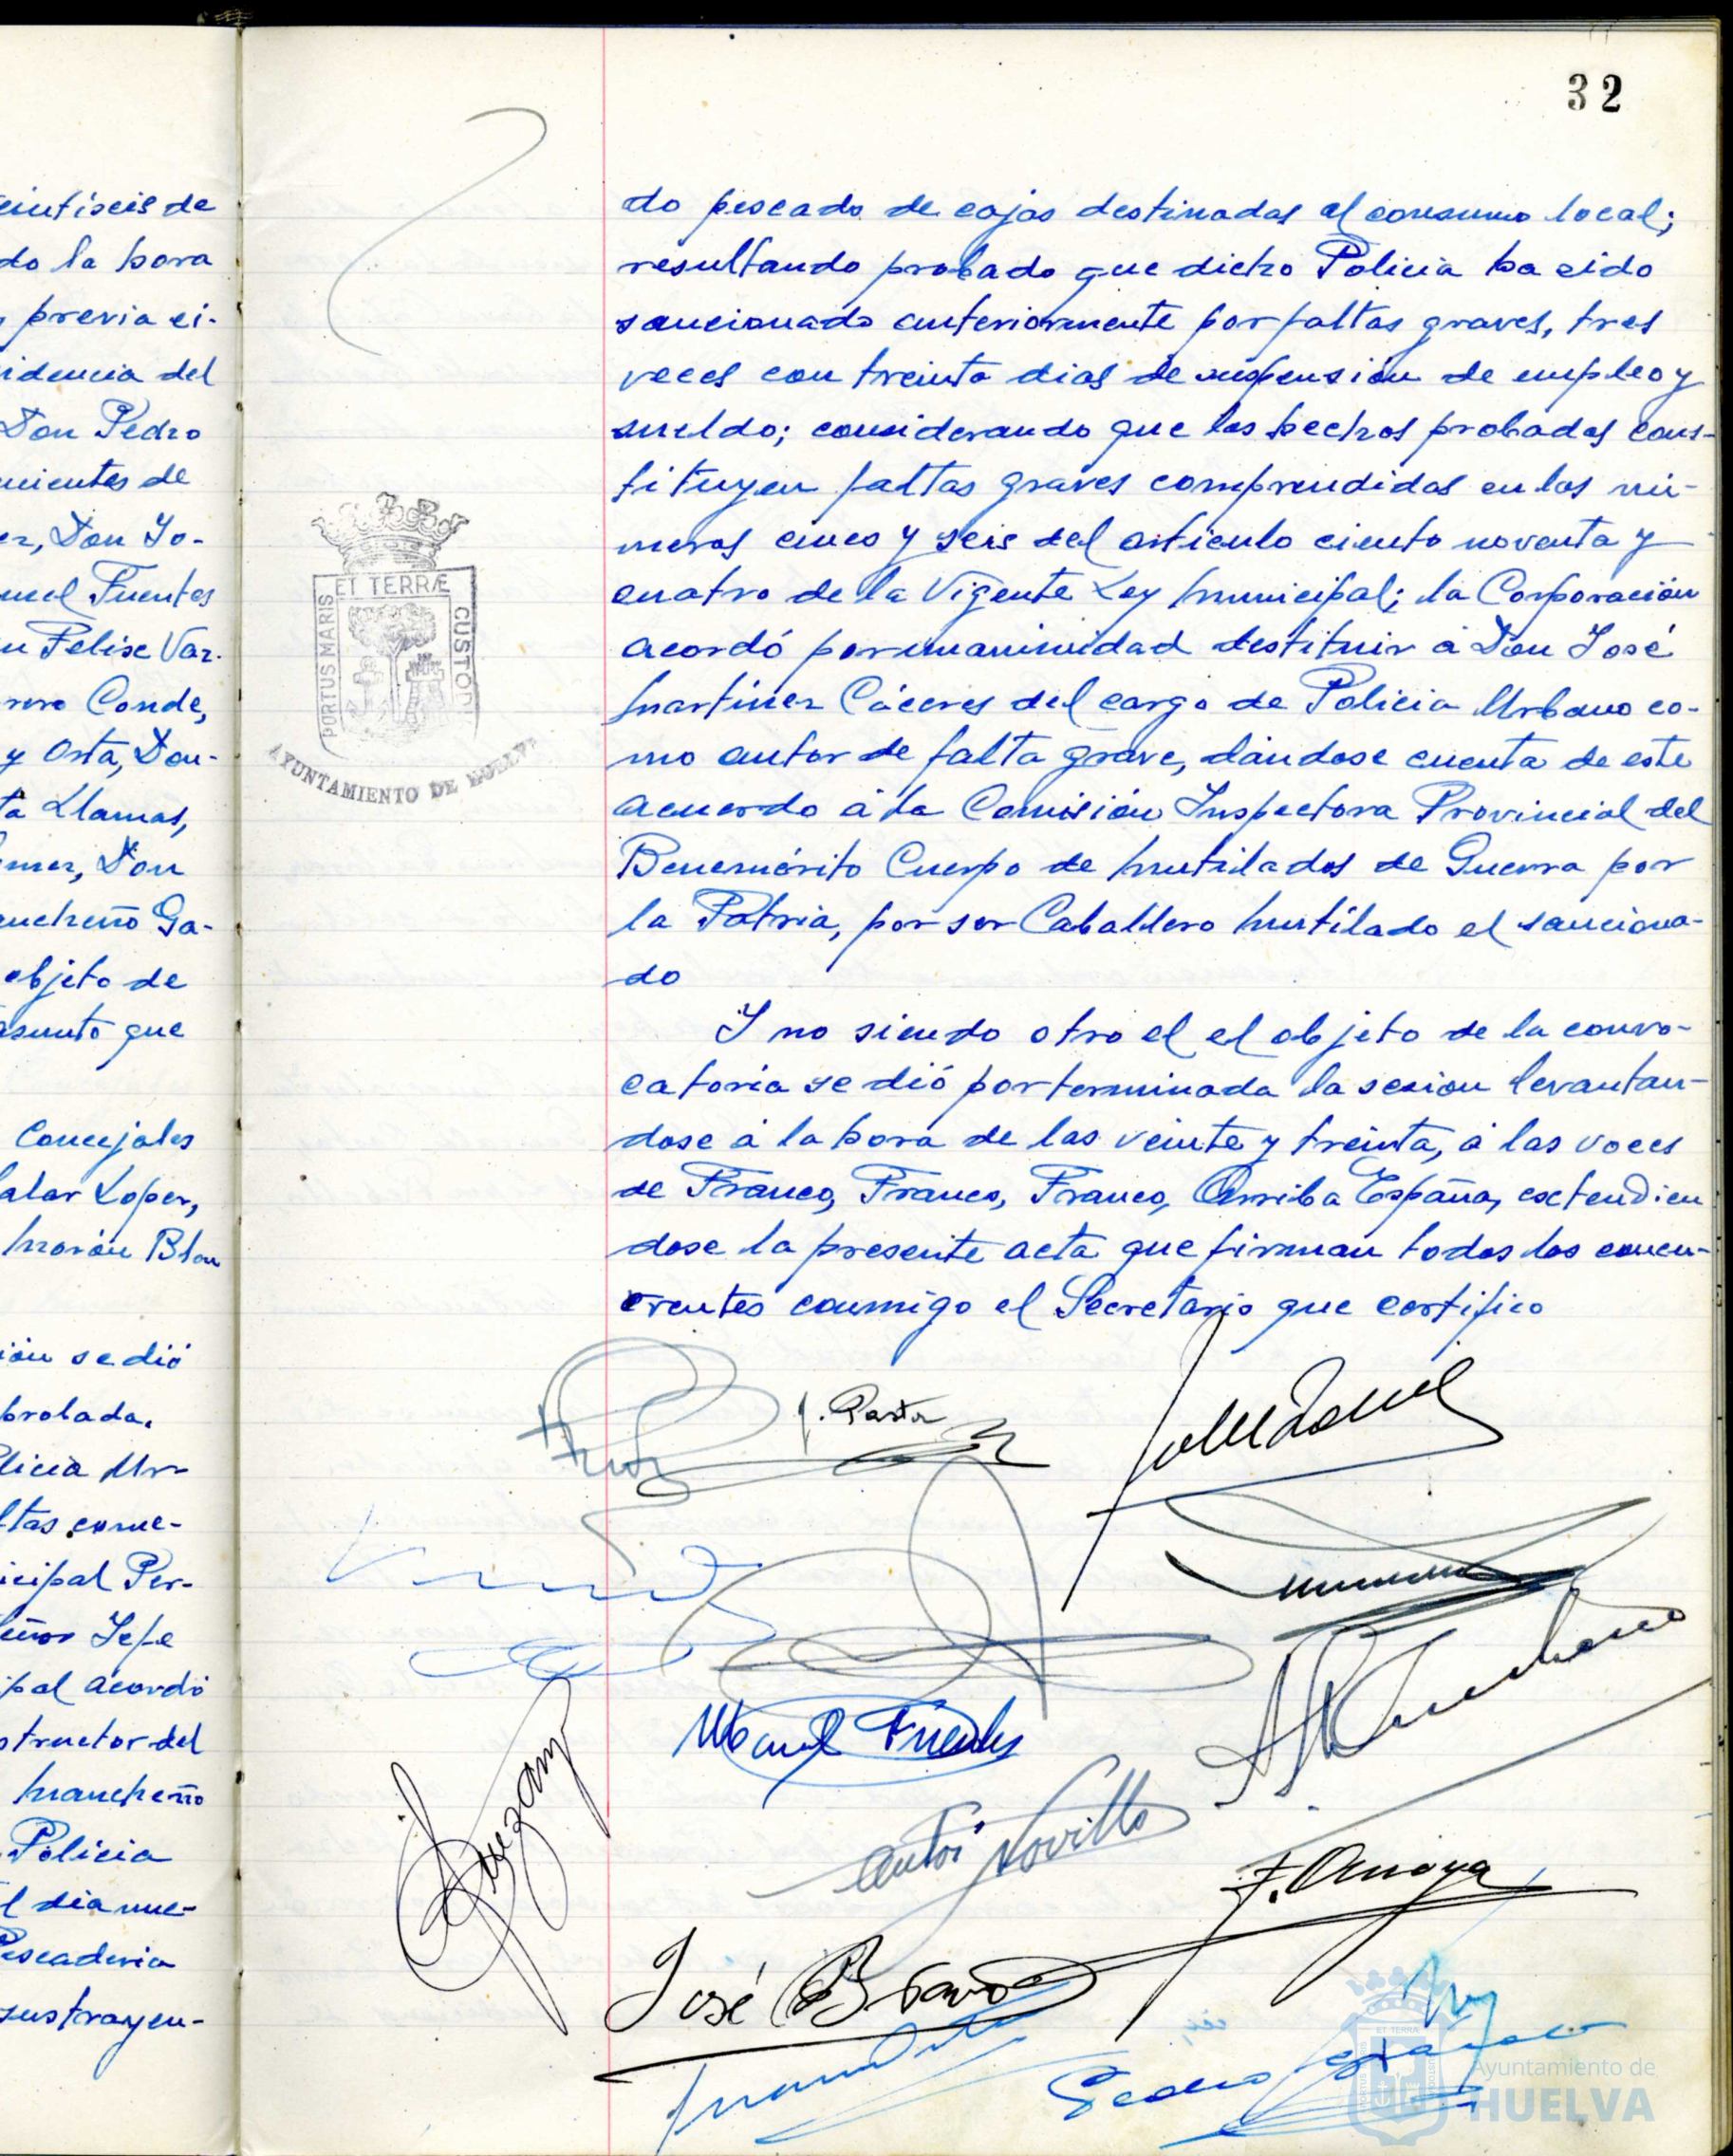 eintiseis de
do la hora
, previa ci-
idencia del
Don Pedro
mientes de
ez, Don Jo-
uel Fuentes
n Felise Vaz-
rero Conde,
y Orta, Don-
ta Llamas,
mez, Don
ancheño Ga-
objeto de
asunto que
Concejales
alar Lopez,
Morón Blan
ión se dió
probada.
licia Ur-
ltas come-
icipal Per-
eñor Jefe
ipal acordó
structor del
Mancheño
Policia
l dia nue-
Pescaderia
sustrayen-
32
do pescado de cajas destinadas al consumo local;
resultando probado que dicho Policia ha sido
sancionado anteriormente por faltas graves, tres
veces con treinta dias de suspensión de empleo y
sueldo; considerando que los hechos probados cons-
tituyen faltas graves comprendidas en los nú-
meros cinco y seis del articulo ciento noventa y
cuatro de la Vigente Ley Municipal; la Corporación
acordó por unanimidad destituir á Don José
Martinez Cáceres del cargo de Policia Urbano co-
mo autor de falta grave, dándose cuenta de este
acuerdo á la Comisión Inspectora Provincial del
Benemérito Cuerpo de Mutilados de Guerra por
la Patria, por ser Caballero Mutilado el sanciona-
do
Y no siendo otro el el objeto de la convo-
catoria se dió por terminada la sesion levantan-
dose á la hora de las veinte y treinta, á las voces
de Franco, Franco, Franco, Arriba España, extendien
dose la presente acta que firman todos los concu-
rrentes conmigo el Secretario que certifico
PORTUS MARIS ET TERRÆ CUSTODI
AYUNTAMIENTO DE HUELVA
J. Pastor
Manuel Fuentes
Antoi Novillo
F. Amaya
José Bravo
Pedro
Ayuntamiento de
HUELVA